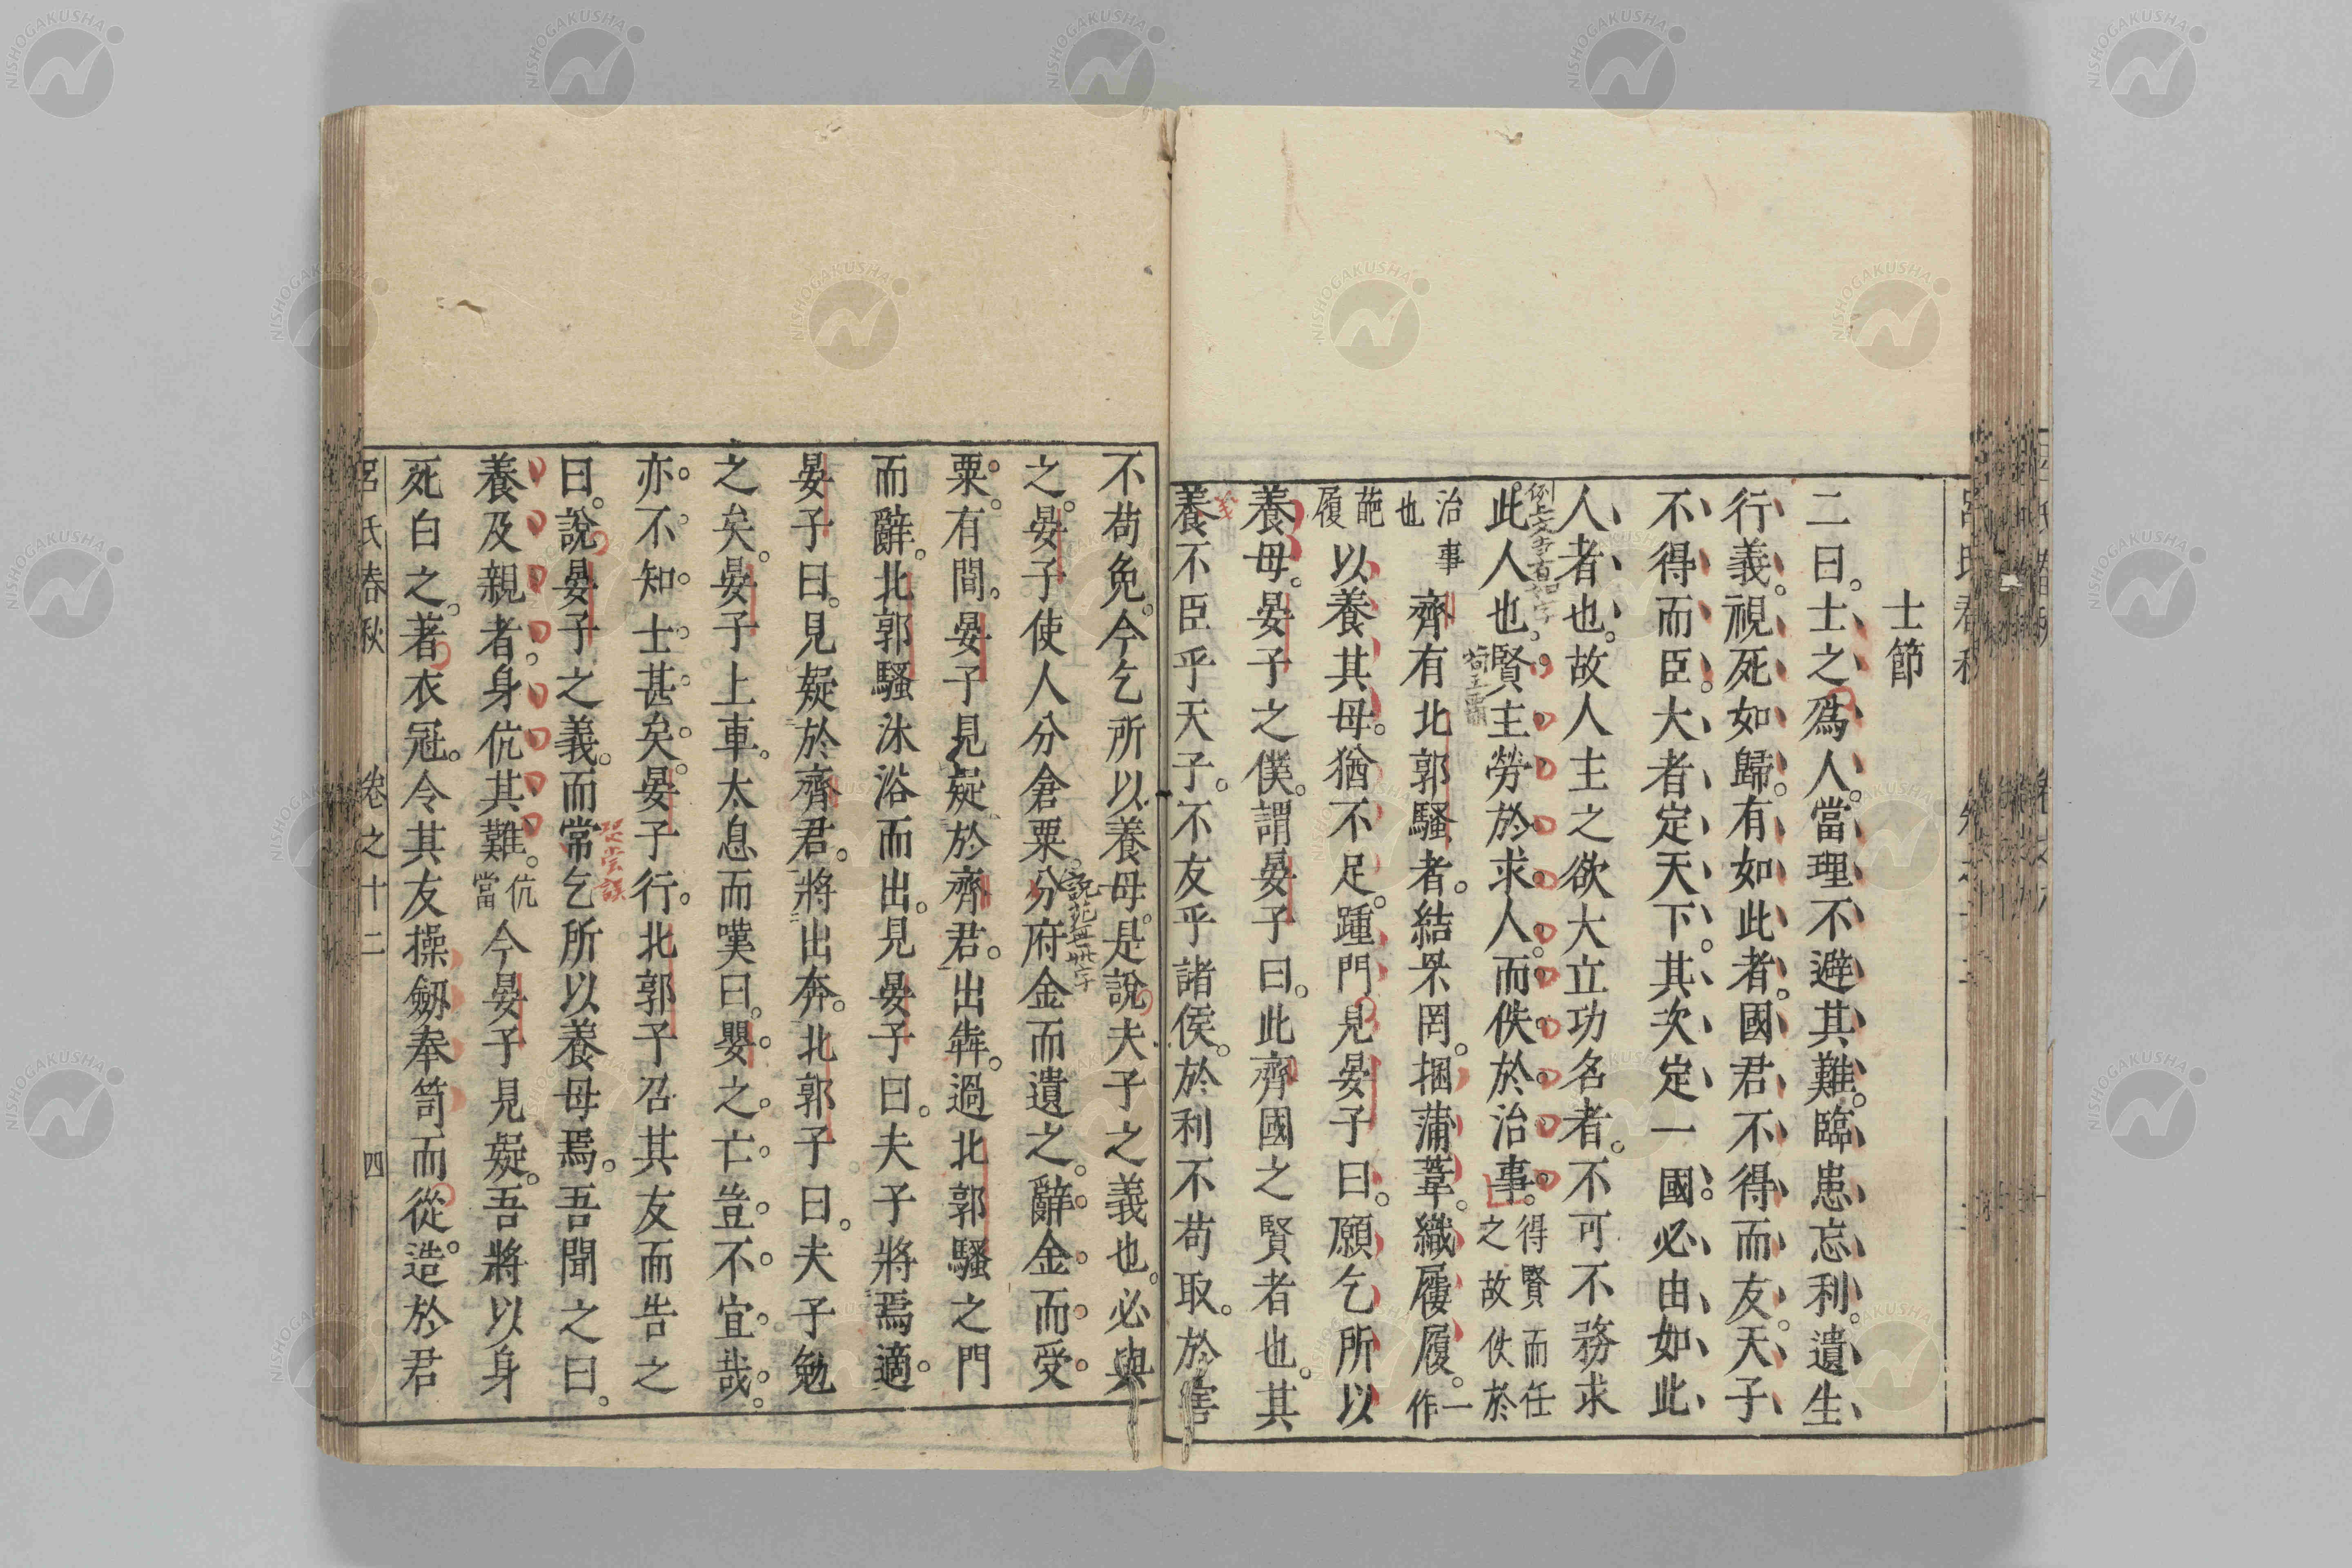 士節
二曰。士之爲人。當理不避其難。臨患忘利。遺生
行義。視死如歸。有如此者。國君不得而友。天子
不得而臣。大者定天下。其次定一國。必由如此
人者也。故人主之欲大立功名者。不可不務求
此人也。賢主勞於求人。而佚於治事。得賢而任之故佚於
治事也 齊有北郭騷者。結罘罔。捆蒲葦。織屨履。一作
葩履 以養其母。猶不足。踵門見晏子曰。願乞所以
養母。晏子之僕。謂晏子曰。此齊國之賢者也。其
養不臣乎天子。不友乎諸侯。於利不苟取。於害
不苟免。今乞所以養母。是說夫子之義也。必與
之。晏子使人分倉粟分府金而遺之。辭金而受
粟。有間。晏子見疑於齊君。出犇。過北郭騷之門
而辭。北郭騷沐浴而出。見晏子曰。夫子將焉適。
晏子曰。見疑於齊君。將出奔。北郭子曰。夫子勉
之矣。晏子上車。太息而嘆曰。嬰之亡豈不宜哉。
亦不知士甚矣。晏子行。北郭子召其友而告之
曰。說晏子之義。而常乞所以養母焉。吾聞之曰。
養及親者。身伉其難。伉當 今晏子見疑。吾將以身
死白之。著衣冠。令其友操劒奉笥而從。造於君
呂氏春秋 卷之十二 四
NISHOGAKUSHA